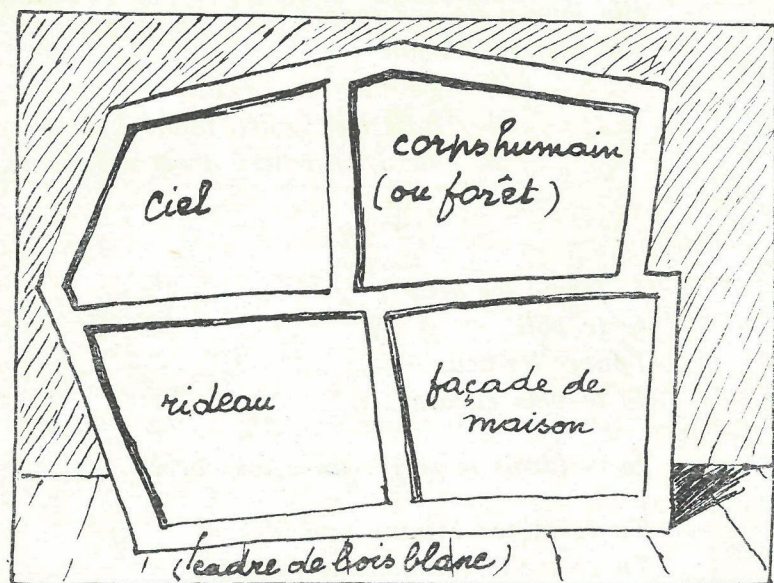 ciel
corps humain
(ou forêt)
rideau
façade de
maison
(cadre de bois blanc)